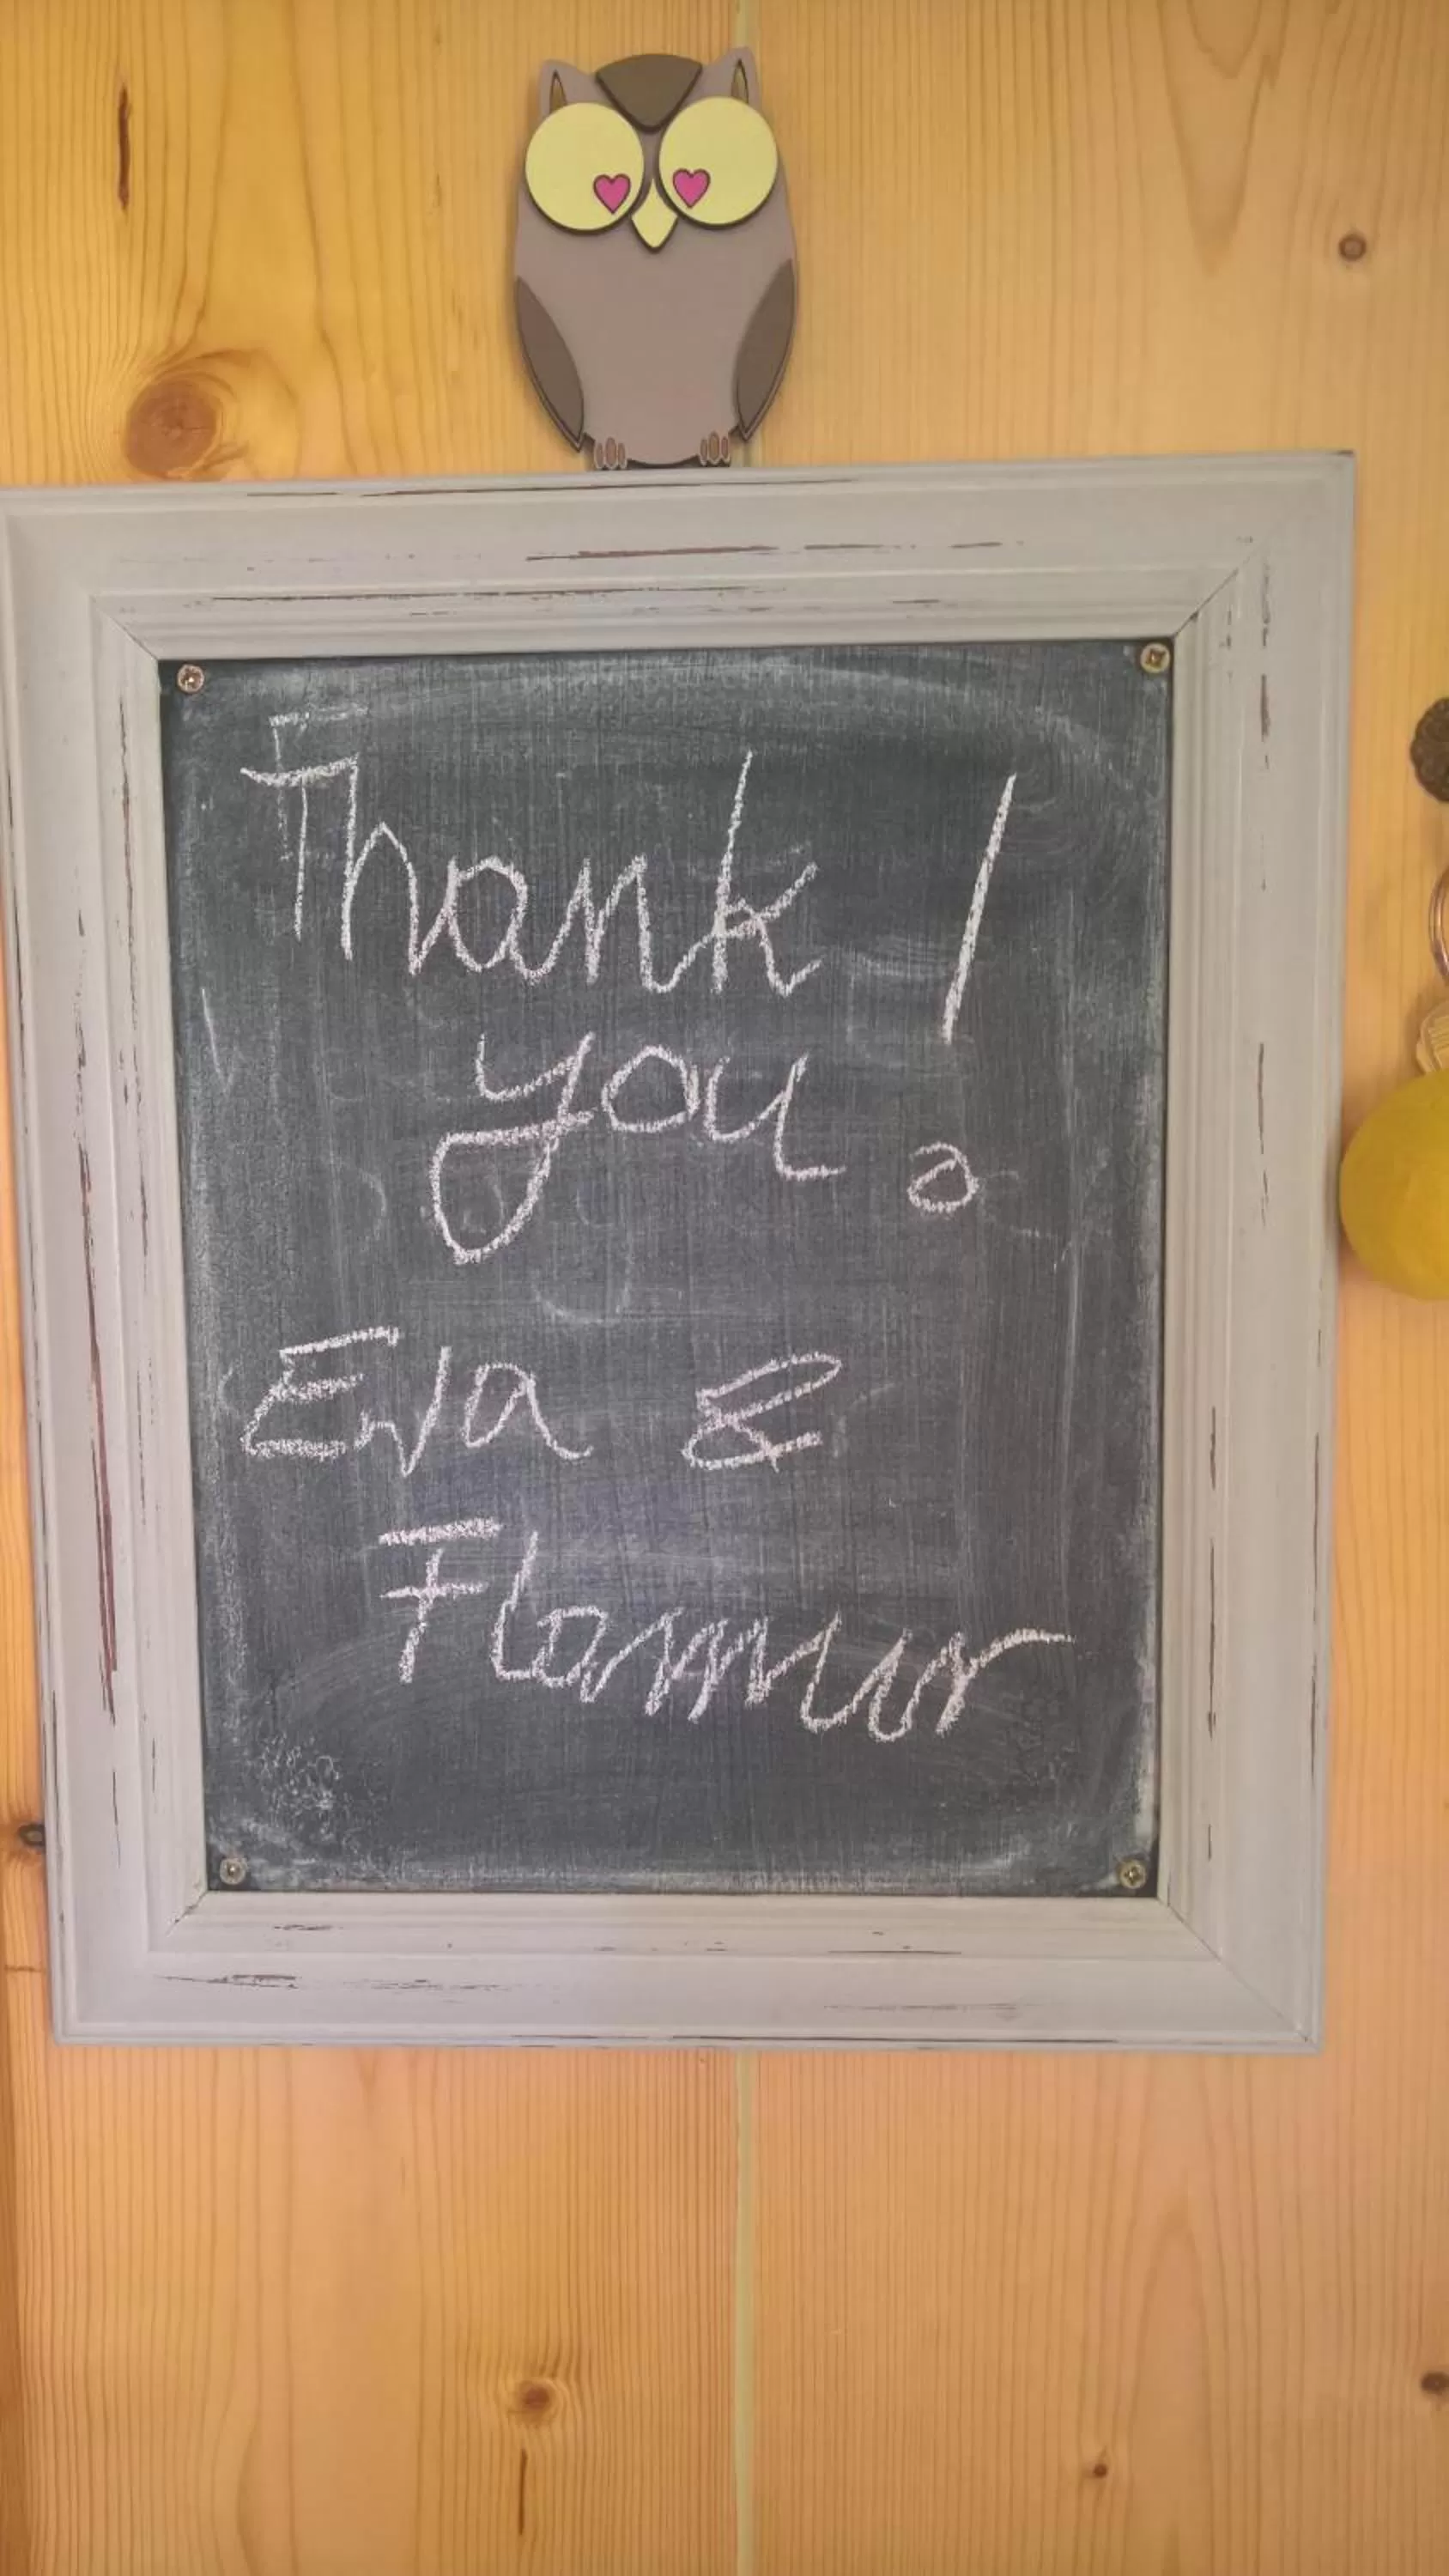 Thank
you!
Eva &
Flammur